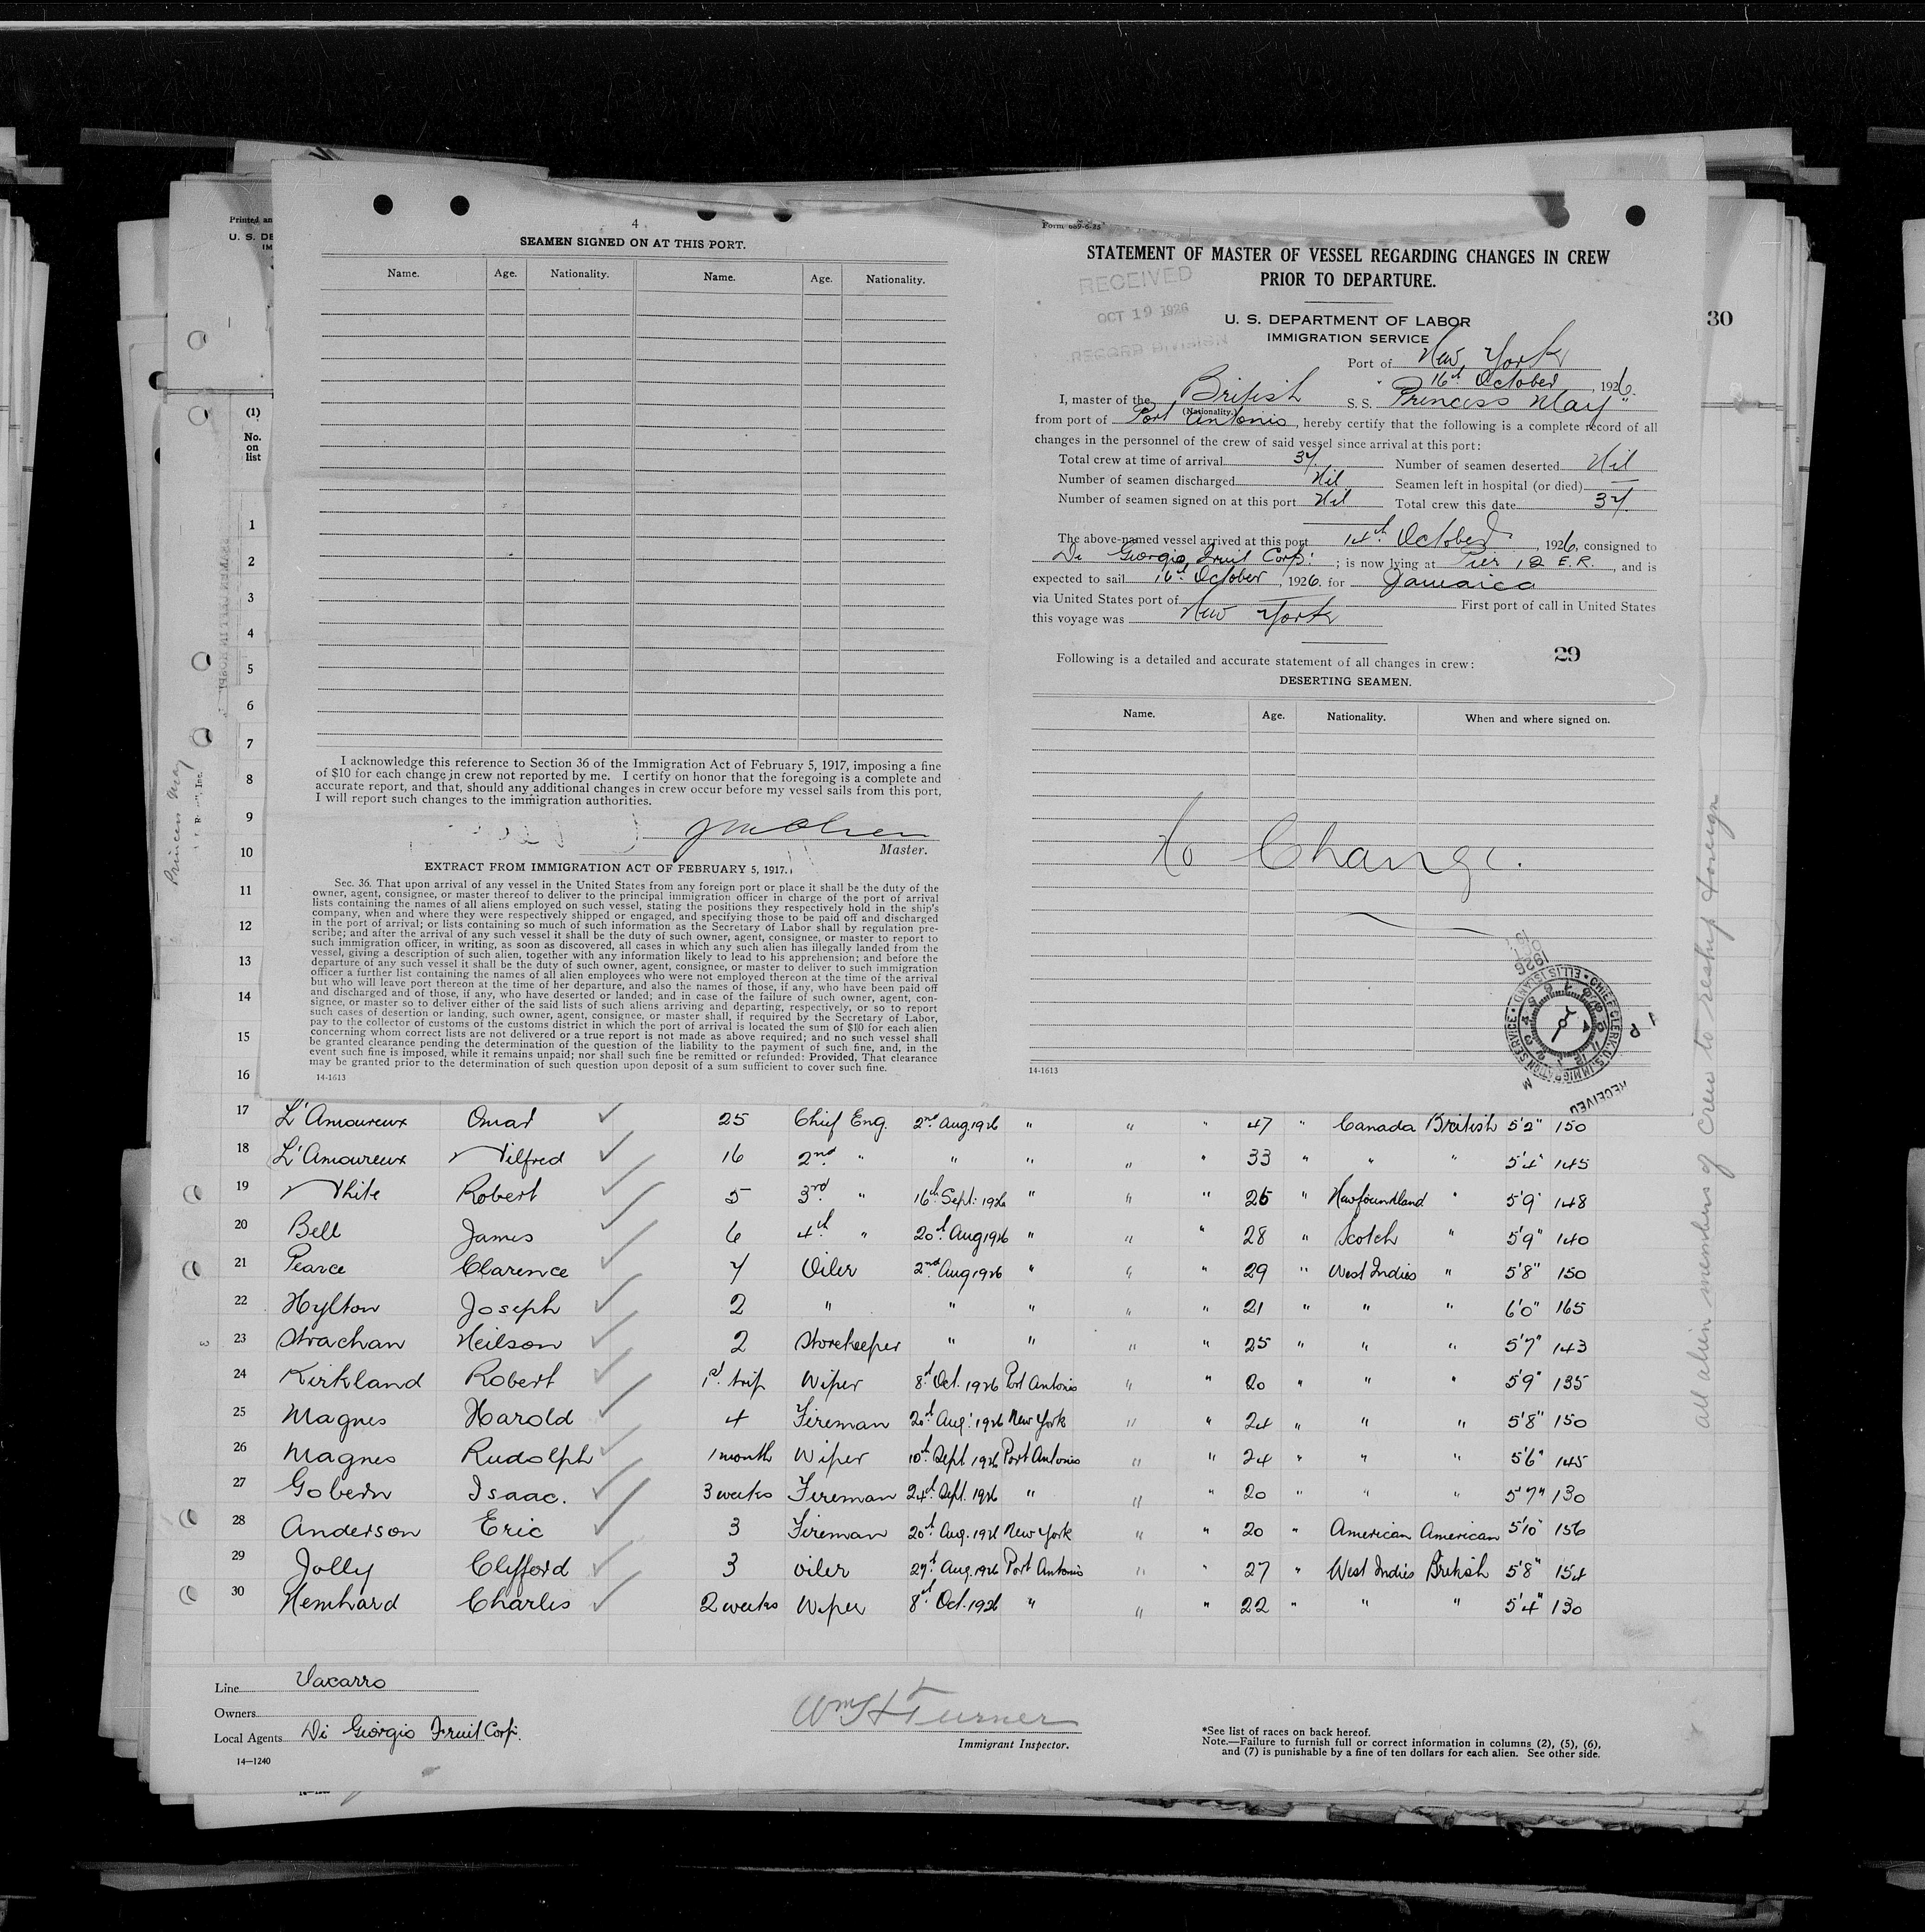 Printed an
U. S. DE
IM
(1)
No.
on
list
1
2
3
4
5
6
7
8
9
10
11
12
13
14
15
16
Princess May
4
SEAMEN SIGNED ON AT THIS PORT.
Name. Age. Nationality. Name. Age. Nationality.
I acknowledge this reference to Section 36 of the Immigration Act of February 5, 1917, imposing a fine
of $10 for each change in crew not reported by me. I certify on honor that the foregoing is a complete and
accurate report, and that, should any additional changes in crew occur before my vessel sails from this port,
I will report such changes to the immigration authorities.
Master.
EXTRACT FROM IMMIGRATION ACT OF FEBRUARY 5, 1917.
Sec. 36. That upon arrival of any vessel in the United States from any foreign port or place it shall be the duty of the
owner, agent, consignee, or master thereof to deliver to the principal immigration officer in charge of the port of arrival
lists containing the names of all aliens employed on such vessel, stating the positions they respectively hold in the ship's
company, when and where they were respectively shipped or engaged, and specifying those to be paid off and discharged
in the port of arrival; or lists containing so much of such information as the Secretary of Labor shall by regulation pre-
scribe; and after the arrival of any such vessel it shall be the duty of such owner, agent, consignee, or master to report to
such immigration officer, in writing, as soon as discovered, all cases in which any such alien has illegally landed from the
vessel, giving a description of such alien, together with any information likely to lead to his apprehension; and before the
departure of any such vessel it shall be the duty of such owner, agent, consignee, or master to deliver to such immigration
officer a further list containing the names of all alien employees who were not employed thereon at the time of the arrival
but who will leave port thereon at the time of her departure, and also the names of those, if any, who have been paid off
and discharged and of those, if any, who have deserted or landed; and in case of the failure of such owner, agent, con-
signee, or master so to deliver either of the said lists of such aliens arriving and departing, respectively, or so to report
such cases of desertion or landing, such owner, agent, consignee, or master shall, if required by the Secretary of Labor,
pay to the collector of customs of the customs district in which the port of arrival is located the sum of $10 for each alien
concerning whom correct lists are not delivered or a true report is not made as above required; and no such vessel shall
be granted clearance pending the determination of the question of the liability to the payment of such fine, and, in the
event such fine is imposed, while it remains unpaid; nor shall such fine be remitted or refunded: Provided, That clearance
may be granted prior to the determination of such question upon deposit of a sum sufficient to cover such fine.
14-1613
Form 689-6-25
STATEMENT OF MASTER OF VESSEL REGARDING CHANGES IN CREW
PRIOR TO DEPARTURE.
RECEIVED
OCT 19 1926
RECORD DIVISION
U. S. DEPARTMENT OF LABOR
IMMIGRATION SERVICE
Port of New York
16th October, 1926.
I, master of the British S. S. "Princess May"
(Nationality.)
from port of Port Antonio, hereby certify that the following is a complete record of all
changes in the personnel of the crew of said vessel since arrival at this port:
Total crew at time of arrival 37. Number of seamen deserted Nil
Number of seamen discharged Nil Seamen left in hospital (or died) —
Number of seamen signed on at this port Nil Total crew this date 37.
The above-named vessel arrived at this port 14th October, 1926, consigned to
Di Giorgio Fruit Corp: ; is now lying at Pier 12 E.R., and is
expected to sail 16th October, 1926. for Jamaica
via United States port of — First port of call in United States
this voyage was New York
Following is a detailed and accurate statement of all changes in crew:
29
DESERTING SEAMEN.
Name. Age. Nationality. When and where signed on.
No Change.
1926
CHIEF CLERK, U.S. IMMIGRATION SERVICE • ELLIS ISLAND •
RECEIVED
P
M
14-1613
30
all alien members of crew to reship foreign
17 L'Amoureux Omar 25 Chief Eng. 2nd Aug. 1926 " " " 47 " Canada British 5'2" 150
18 L'Amoureux Wilfred 16 2nd " " " " " 33 " " " 5'4" 145
19 White Robert 5 3rd " 16th Sept: 1926 " " " 26 " Newfoundland " 5'9" 148
20 Bell James 6 4th " 20th Aug 1926 " " " 28 " Scotch " 5'9" 140
21 Pearce Clarence 7 Oiler 2nd Aug 1926 " " " 29 " West Indies " 5'8" 150
22 Hylton Joseph 2 " " " " " 21 " " " 6'0" 165
23 Strachan Neilson 2 Storekeeper " " " " 25 " " " 5'7" 143
24 Kirkland Robert 1st trip Wiper 8th Oct. 1926 Port Antonio " " 20 " " " 5'9" 135
25 Magnes Harold 4 Fireman 20th Aug: 1926 New York " " 24 " " " 5'8" 150
26 Magnes Rudolph 1 month Wiper 10th Sept 1926 Port Antonio " " 24 " " " 5'6" 145
27 Gobern Isaac. 3 weeks Fireman 24th Sept. 1926 " " " 20 " " " 5'7" 130
28 Anderson Eric 3 Fireman 20th Aug. 1926 New York " " 20 " American American 5'10" 156
29 Jolly Clifford 3 oiler 27th Aug. 1926 Port Antonio " " 27 " West Indies British 5'8" 154
30 Hemhard Charles 2 weeks Wiper 8th Oct. 1926 " " " 22 " " " 5'4" 130
Line Vacarro
Owners
Local Agents Di Giorgio Fruit Corp.
14—1240
Wm H Turner
Immigrant Inspector.
*See list of races on back hereof.
Note.—Failure to furnish full or correct information in columns (2), (5), (6),
and (7) is punishable by a fine of ten dollars for each alien. See other side.